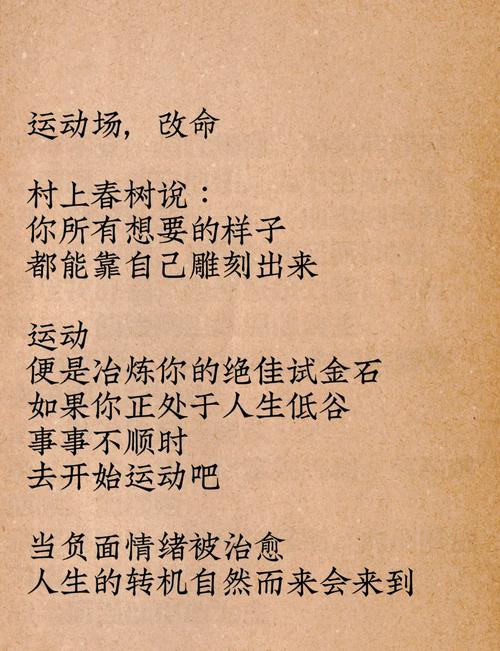 运动场，改命
村上春树说：
你所有想要的样子
都能靠自己雕刻出来
运动
便是冶炼你的绝佳试金石
如果你正处于人生低谷
事事不顺时
去开始运动吧
当负面情绪被治愈
人生的转机自然而来会来到